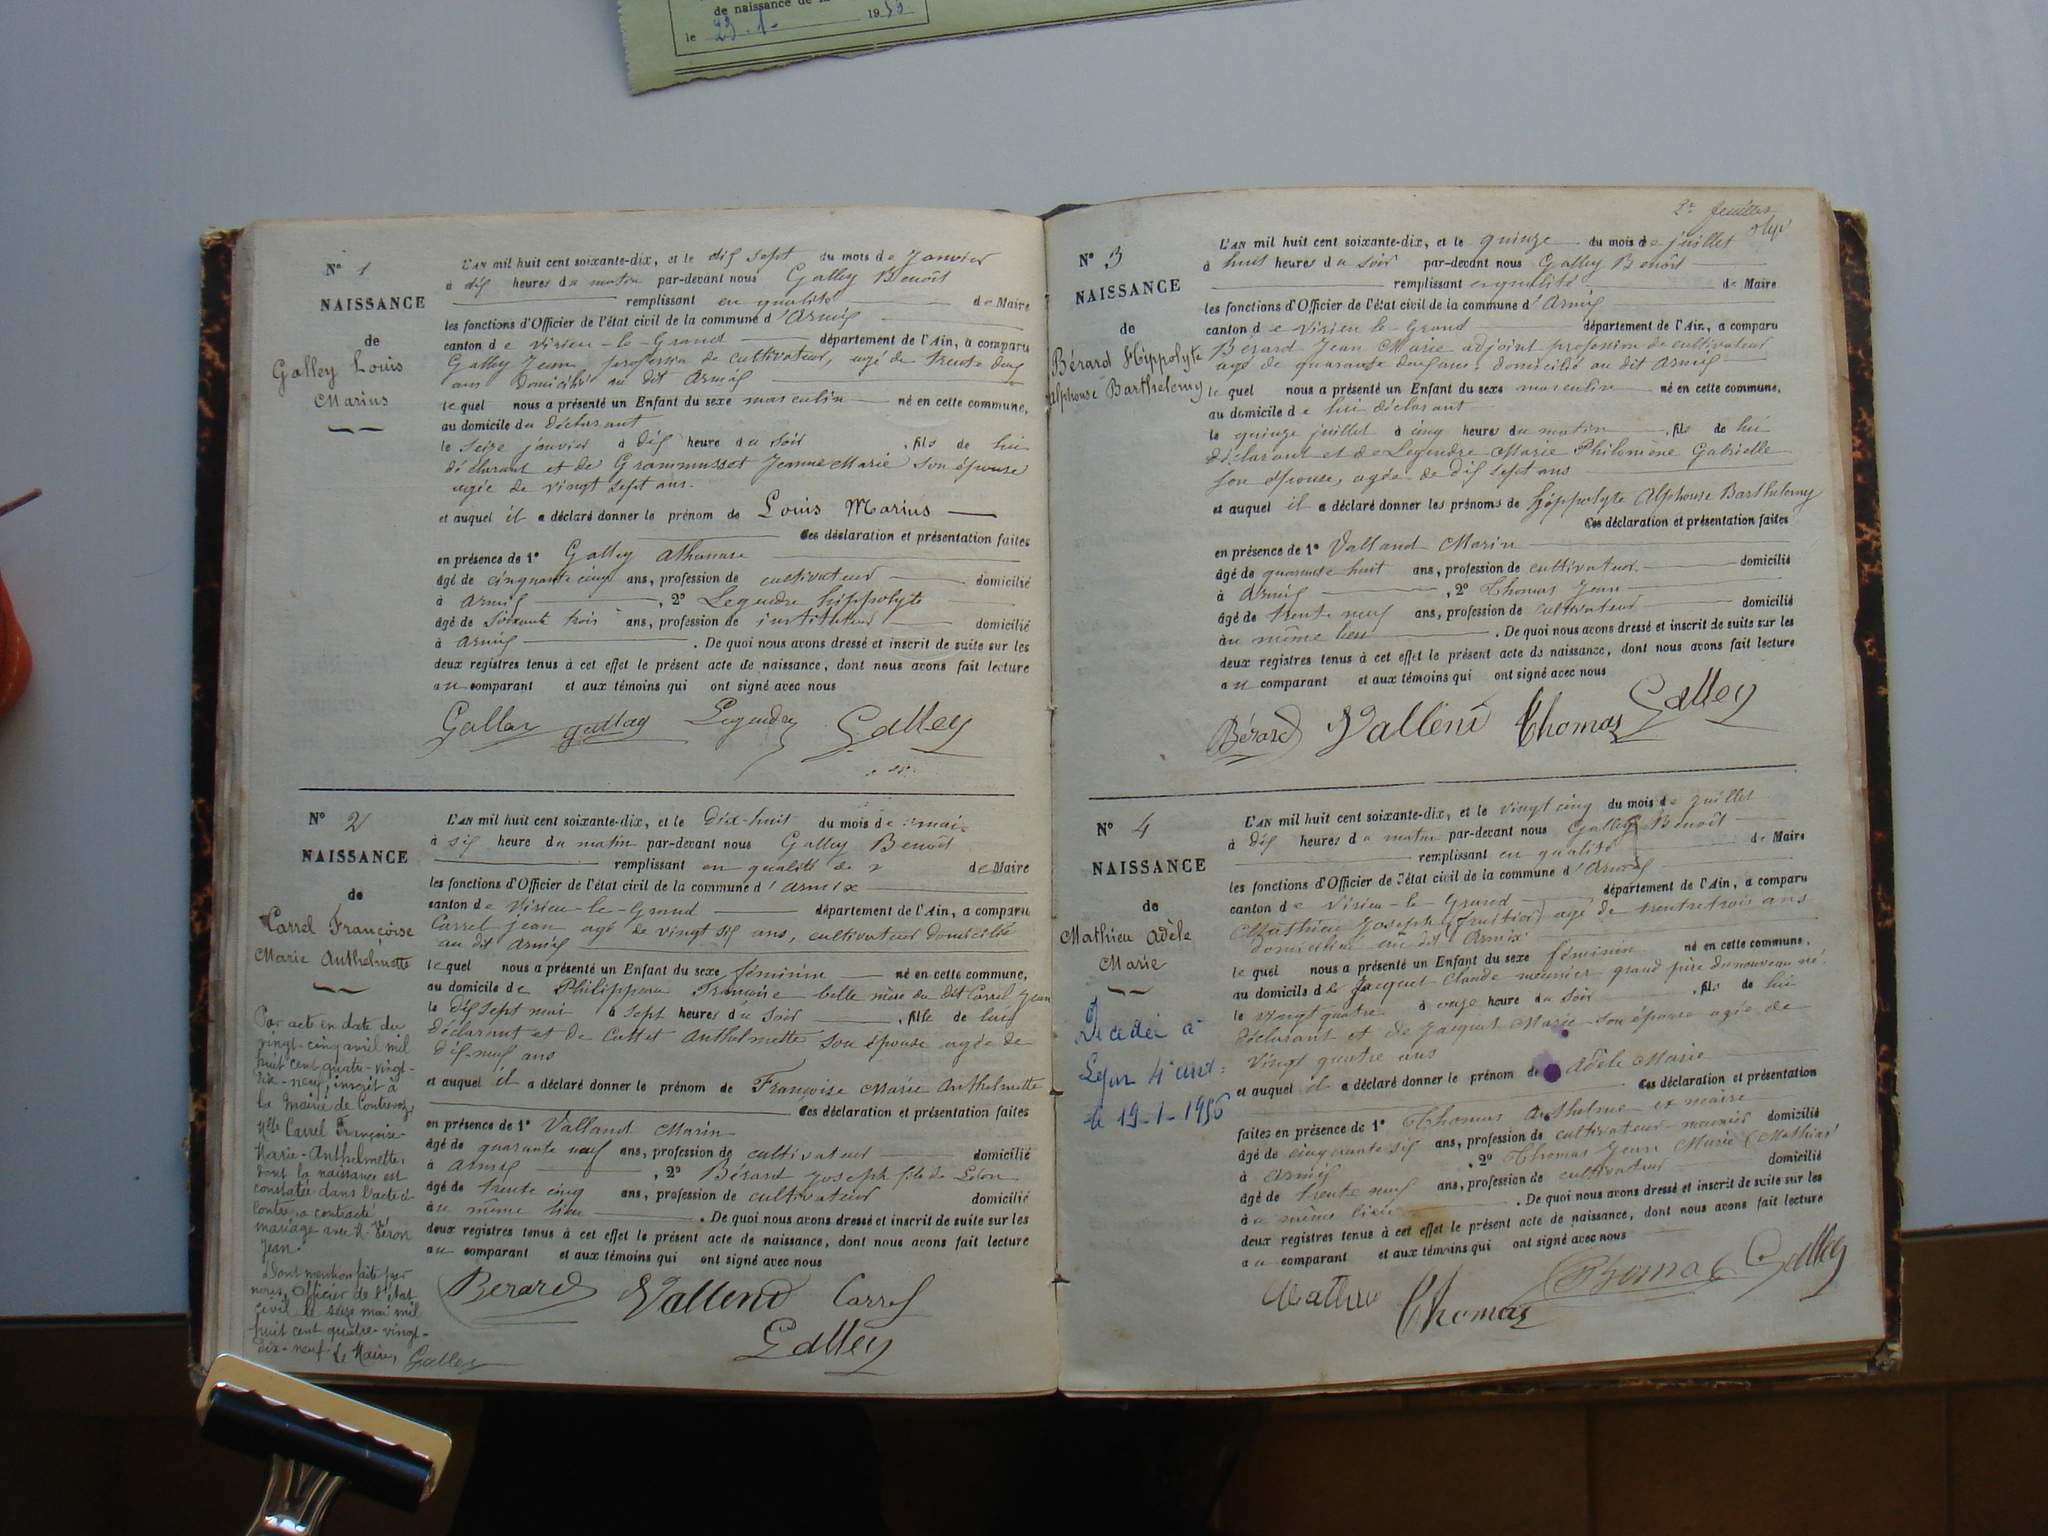 de naissance de la
le 23-1- 1953
N° 1
NAISSANCE
de
Galley Louis
Marius
L'AN mil huit cent soixante-dix, et le dix sept du mois de Janvier
à dix heures du matin par-devant nous Galley Benoît
remplissant en qualité de Maire
les fonctions d'Officier de l'état civil de la commune d'Armix
canton de Virieu-le-Grand département de l'Ain, a comparu
Galley Jean profession de cultivateur, agé de trente deux
ans domicilié au dit Armix
lequel nous a présenté un Enfant du sexe masculin né en cette commune,
au domicile du déclarant
le seize janvier à dix heure du soir, fils de lui
déclarant et de Grammusset Jeanne Marie son épouse
agée de vingt sept ans.
et auquel il a déclaré donner le prénom de Louis Marius
Ces déclaration et présentation faites
en présence de 1° Galley Athanase
âgé de cinquante cinq ans, profession de cultivateur domicilié
à Armix, 2° Legendre hippolyte
âgé de soixante trois ans, profession de instituteur domicilié
à Armix. De quoi nous avons dressé et inscrit de suite sur les
deux registres tenus à cet effet le présent acte de naissance, dont nous avons fait lecture
au comparant et aux témoins qui ont signé avec nous
Galley Galley Legendre Galley
N° 2
NAISSANCE
de
Carrel Françoise
Marie Anthelmette
Par acte en date du
vingt-cinq avril mil
huit cent quatre-vingt-
dix-neuf, inscrit à
la Mairie de Contrevoz,
Mlle Carrel Françoise
Marie-Anthelmette,
dont la naissance est
constatée dans l'acte ci-
contre, a contracté
mariage avec M. Véron
Jean.
Dont mention faite par
nous, Officier de l'état
civil le seize mai mil
huit cent quatre-vingt-
dix-neuf. Le Maire, Galley
L'AN mil huit cent soixante-dix, et le Dix-huit du mois de mai
à six heure du matin par-devant nous Galley Benoît
remplissant en qualité de de Maire
les fonctions d'Officier de l'état civil de la commune d'Armix
canton de Virieu-le-Grand département de l'Ain, a comparu
Carrel jean agé de vingt six ans, cultivateur domicilié
au dit Armix
lequel nous a présenté un Enfant du sexe féminin né en cette commune,
au domicile de Philippeau Françoise belle mère du dit Carrel Jean
le dix sept mai à sept heures du soir, fille de lui
déclarant et de Cuttet Anthelmette son épouse agée de
dix-neuf ans
et auquel il a déclaré donner le prénom de Françoise Marie Anthelmette
Ces déclaration et présentation faites
en présence de 1° Valland Marin
âgé de quarante neuf ans, profession de cultivateur domicilié
à Armix, 2° Bérard Joseph fils de Léon
âgé de trente cinq ans, profession de cultivateur domicilié
au même lieu. De quoi nous avons dressé et inscrit de suite sur les
deux registres tenus à cet effet le présent acte de naissance, dont nous avons fait lecture
au comparant et aux témoins qui ont signé avec nous
Berard Vallend Carrel
Galley
2e feuillet
N° 3
NAISSANCE
de
Bérard Hippolyte
alphonse Barthelemy
L'AN mil huit cent soixante-dix, et le quinze du mois de juillet
à huit heures du soir par-devant nous Galley Benoît
remplissant en qualité de Maire
les fonctions d'Officier de l'état civil de la commune d'Armix
canton de Virieu le Grand département de l'Ain, a comparu
Bérard Jean Marie adjoint profession de cultivateur
agé de quarante deux ans, domicilié au dit Armix
lequel nous a présenté un Enfant du sexe masculin né en cette commune,
au domicile de lui déclarant
le quinze juillet à cinq heures du matin, fils de lui
déclarant et de Legendre Marie Philomène Gabrielle
son épouse, agée de dix sept ans
et auquel il a déclaré donner les prénoms de hippolyte Alphonse Barthelemy
Ces déclaration et présentation faites
en présence de 1° Valland Marin
âgé de quarante huit ans, profession de cultivateur domicilié
à Armix, 2° Thomas Jean
âgé de trente neuf ans, profession de cultivateur domicilié
au même lieu. De quoi nous avons dressé et inscrit de suite sur les
deux registres tenus à cet effet le présent acte de naissance, dont nous avons fait lecture
au comparant et aux témoins qui ont signé avec nous
Bérard Vallend Thomas Galley
N° 4
NAISSANCE
de
Mathieu Adèle
Marie
Décédée à
le 19-1-1956
L'AN mil huit cent soixante-dix, et le vingt cinq du mois de juillet
à dix heures du matin par-devant nous Galley Benoît
remplissant en qualité de Maire
les fonctions d'Officier de l'état civil de la commune d'Armix
canton de Virieu-le-Grand département de l'Ain, a comparu
Mathieu Joseph (fruitier) agé de trente trois ans
domicilié au dit Armix
lequel nous a présenté un Enfant du sexe féminin né en cette commune,
au domicile de Jacquet Claude meunier grand père du nouveau né
le vingt quatre à onze heure du soir, fils de lui
déclarant et de Jacquet Marie son épouse agée de
vingt quatre ans
et auquel il a déclaré donner le prénom de Adèle Marie
Ces déclaration et présentation
faites en présence de 1° Thomas Anthelme ex maire
âgé de cinquante six ans, profession de cultivateur-meunier domicilié
à Armix, 2° Thomas Jean Marie (Mathias)
âgé de trente neuf ans, profession de cultivateur domicilié
au même lieu. De quoi nous avons dressé et inscrit de suite sur les
deux registres tenus à cet effet le présent acte de naissance, dont nous avons fait lecture
au comparant et aux témoins qui ont signé avec nous
Mathieu Thomas Thomas Galley